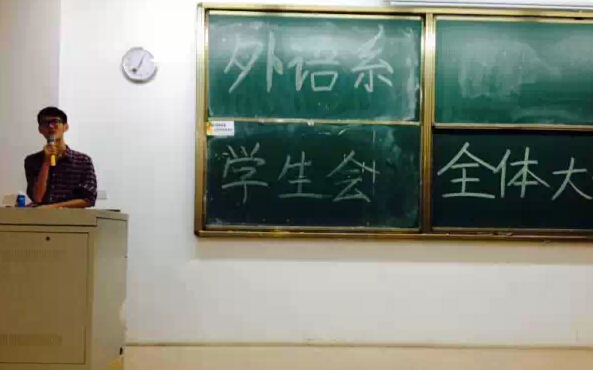 外语系
学生会 全体大